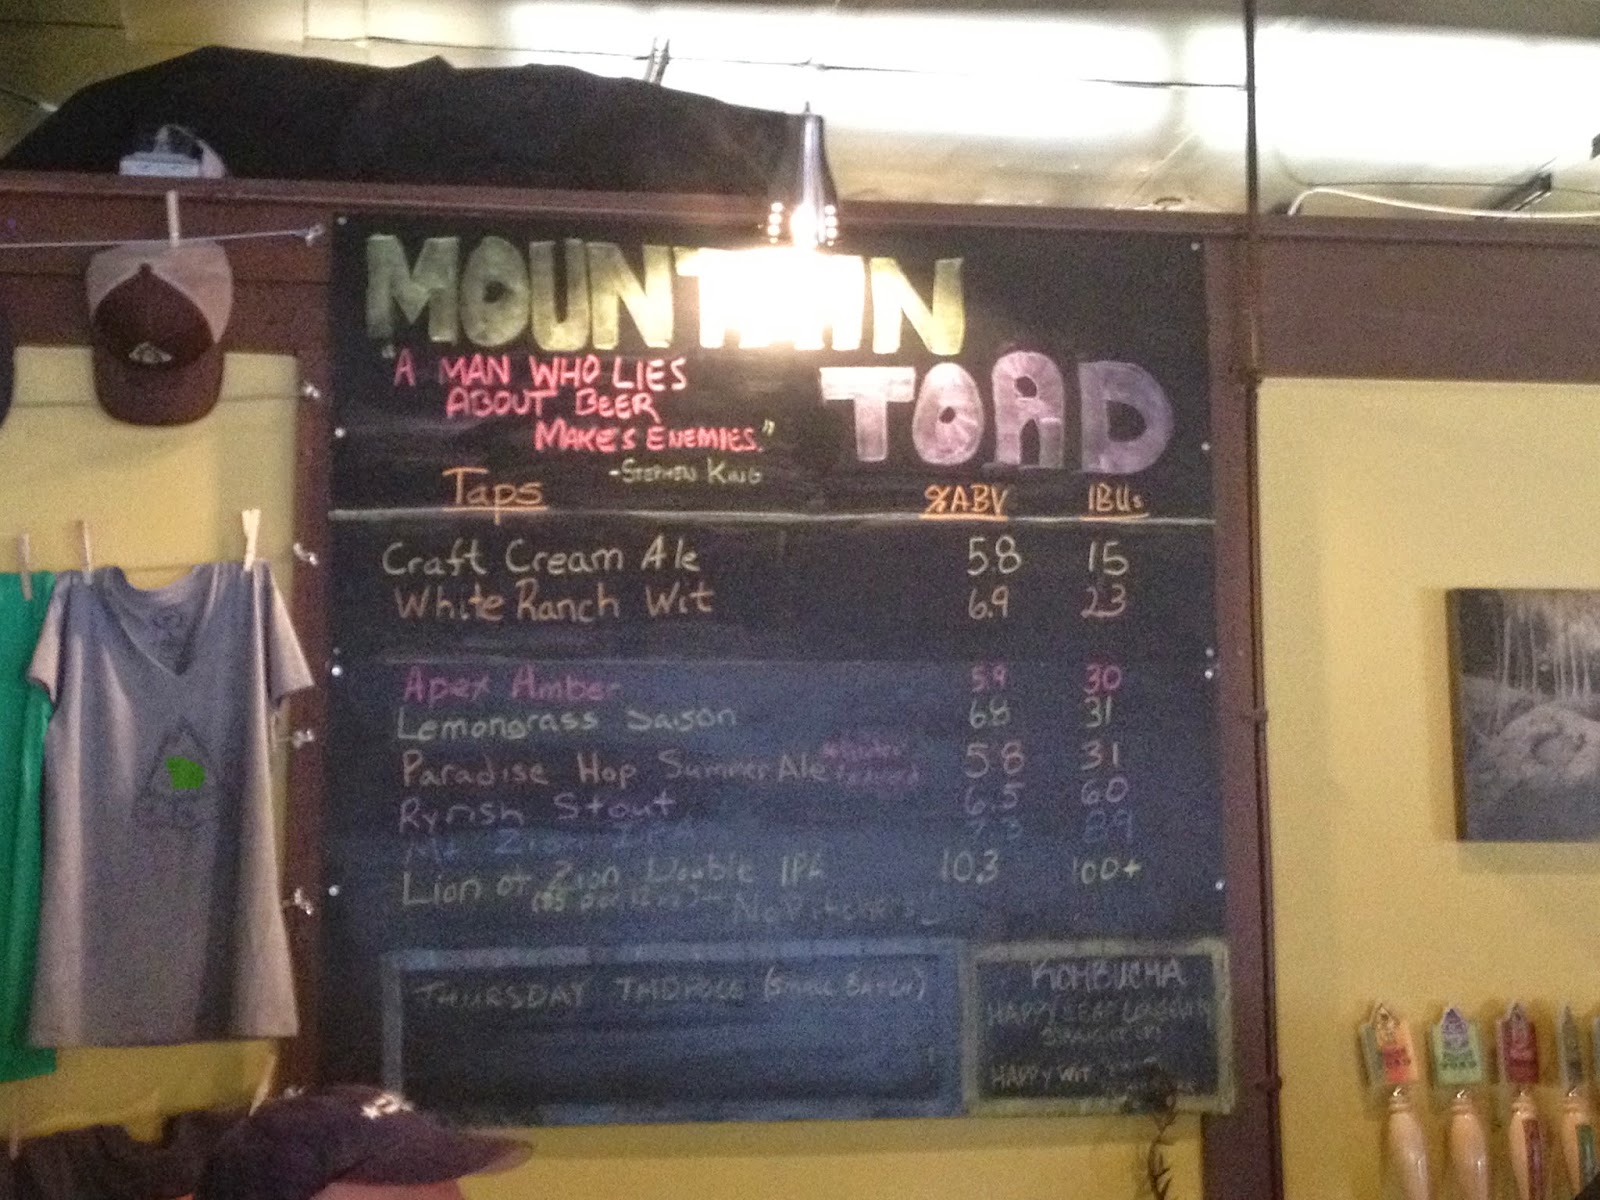 MOUNTAIN
TOAD
"A MAN WHO LIES
ABOUT BEER
MAKES ENEMIES."
-STEPHEN KING
Taps %ABV IBUs
Craft Cream Ale 5.8 15
White Ranch Wit 6.9 23
Apex Amber 5.9 30
Lemongrass Saison 6.8 31
Paradise Hop Summer Ale 5.8 31
Ryrish Stout 6.5 60
Mt Zion IPA 7.3 89
Lion of Zion Double IPA 10.3 100+
No Pitchers
THURSDAY TADPOLE (SMALL BATCH)
KOMBUCHA
HAPPY LEAF
HAPPY WIT